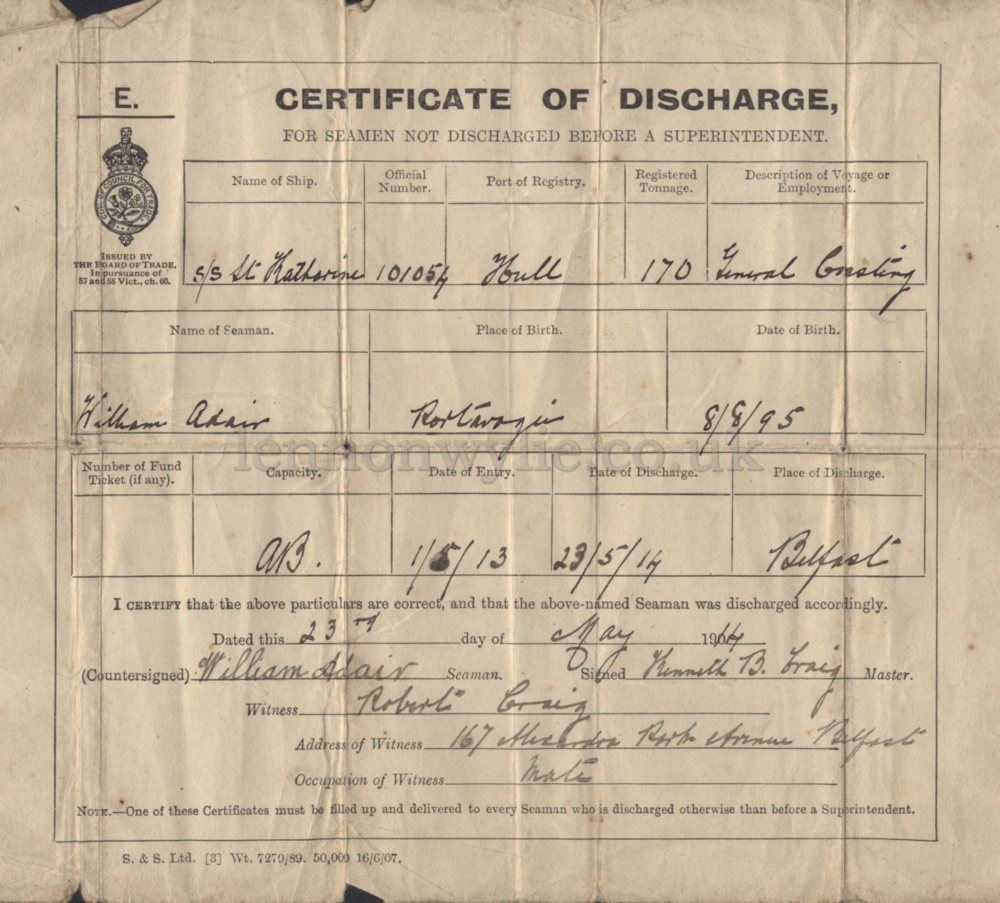 E.
CERTIFICATE OF DISCHARGE,
FOR SEAMEN NOT DISCHARGED BEFORE A SUPERINTENDENT.
SEAL OF COUNCIL FOR TRADE
ISSUED BY
THE BOARD OF TRADE,
In pursuance of
57 and 58 Vict., ch. 60.
Name of Ship. Official Number. Port of Registry. Registered Tonnage. Description of Voyage or Employment.
S/S St Katharine 101054 Hull 170 General Coasting
Name of Seaman. Place of Birth. Date of Birth.
William Adair Portavogie 8/8/95
lennonwylie.co.uk
Number of Fund Ticket (if any). Capacity. Date of Entry. Date of Discharge. Place of Discharge.
AB. 1/5/13 23/5/14 Belfast
I CERTIFY that the above particulars are correct, and that the above-named Seaman was discharged accordingly.
Dated this 23rd day of May 1914
(Countersigned) William Adair Seaman. Signed Kenneth B. Craig Master.
Witness Robert Craig
Address of Witness 167 Alexandra Park Avenue Belfast
Occupation of Witness Mate
NOTE.—One of these Certificates must be filled up and delivered to every Seaman who is discharged otherwise than before a Superintendent.
S. & S. Ltd. [3] Wt. 7279/89. 50,000 16/6/07.